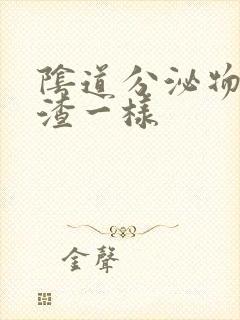 陰道分泌物
渣一樣
金聲